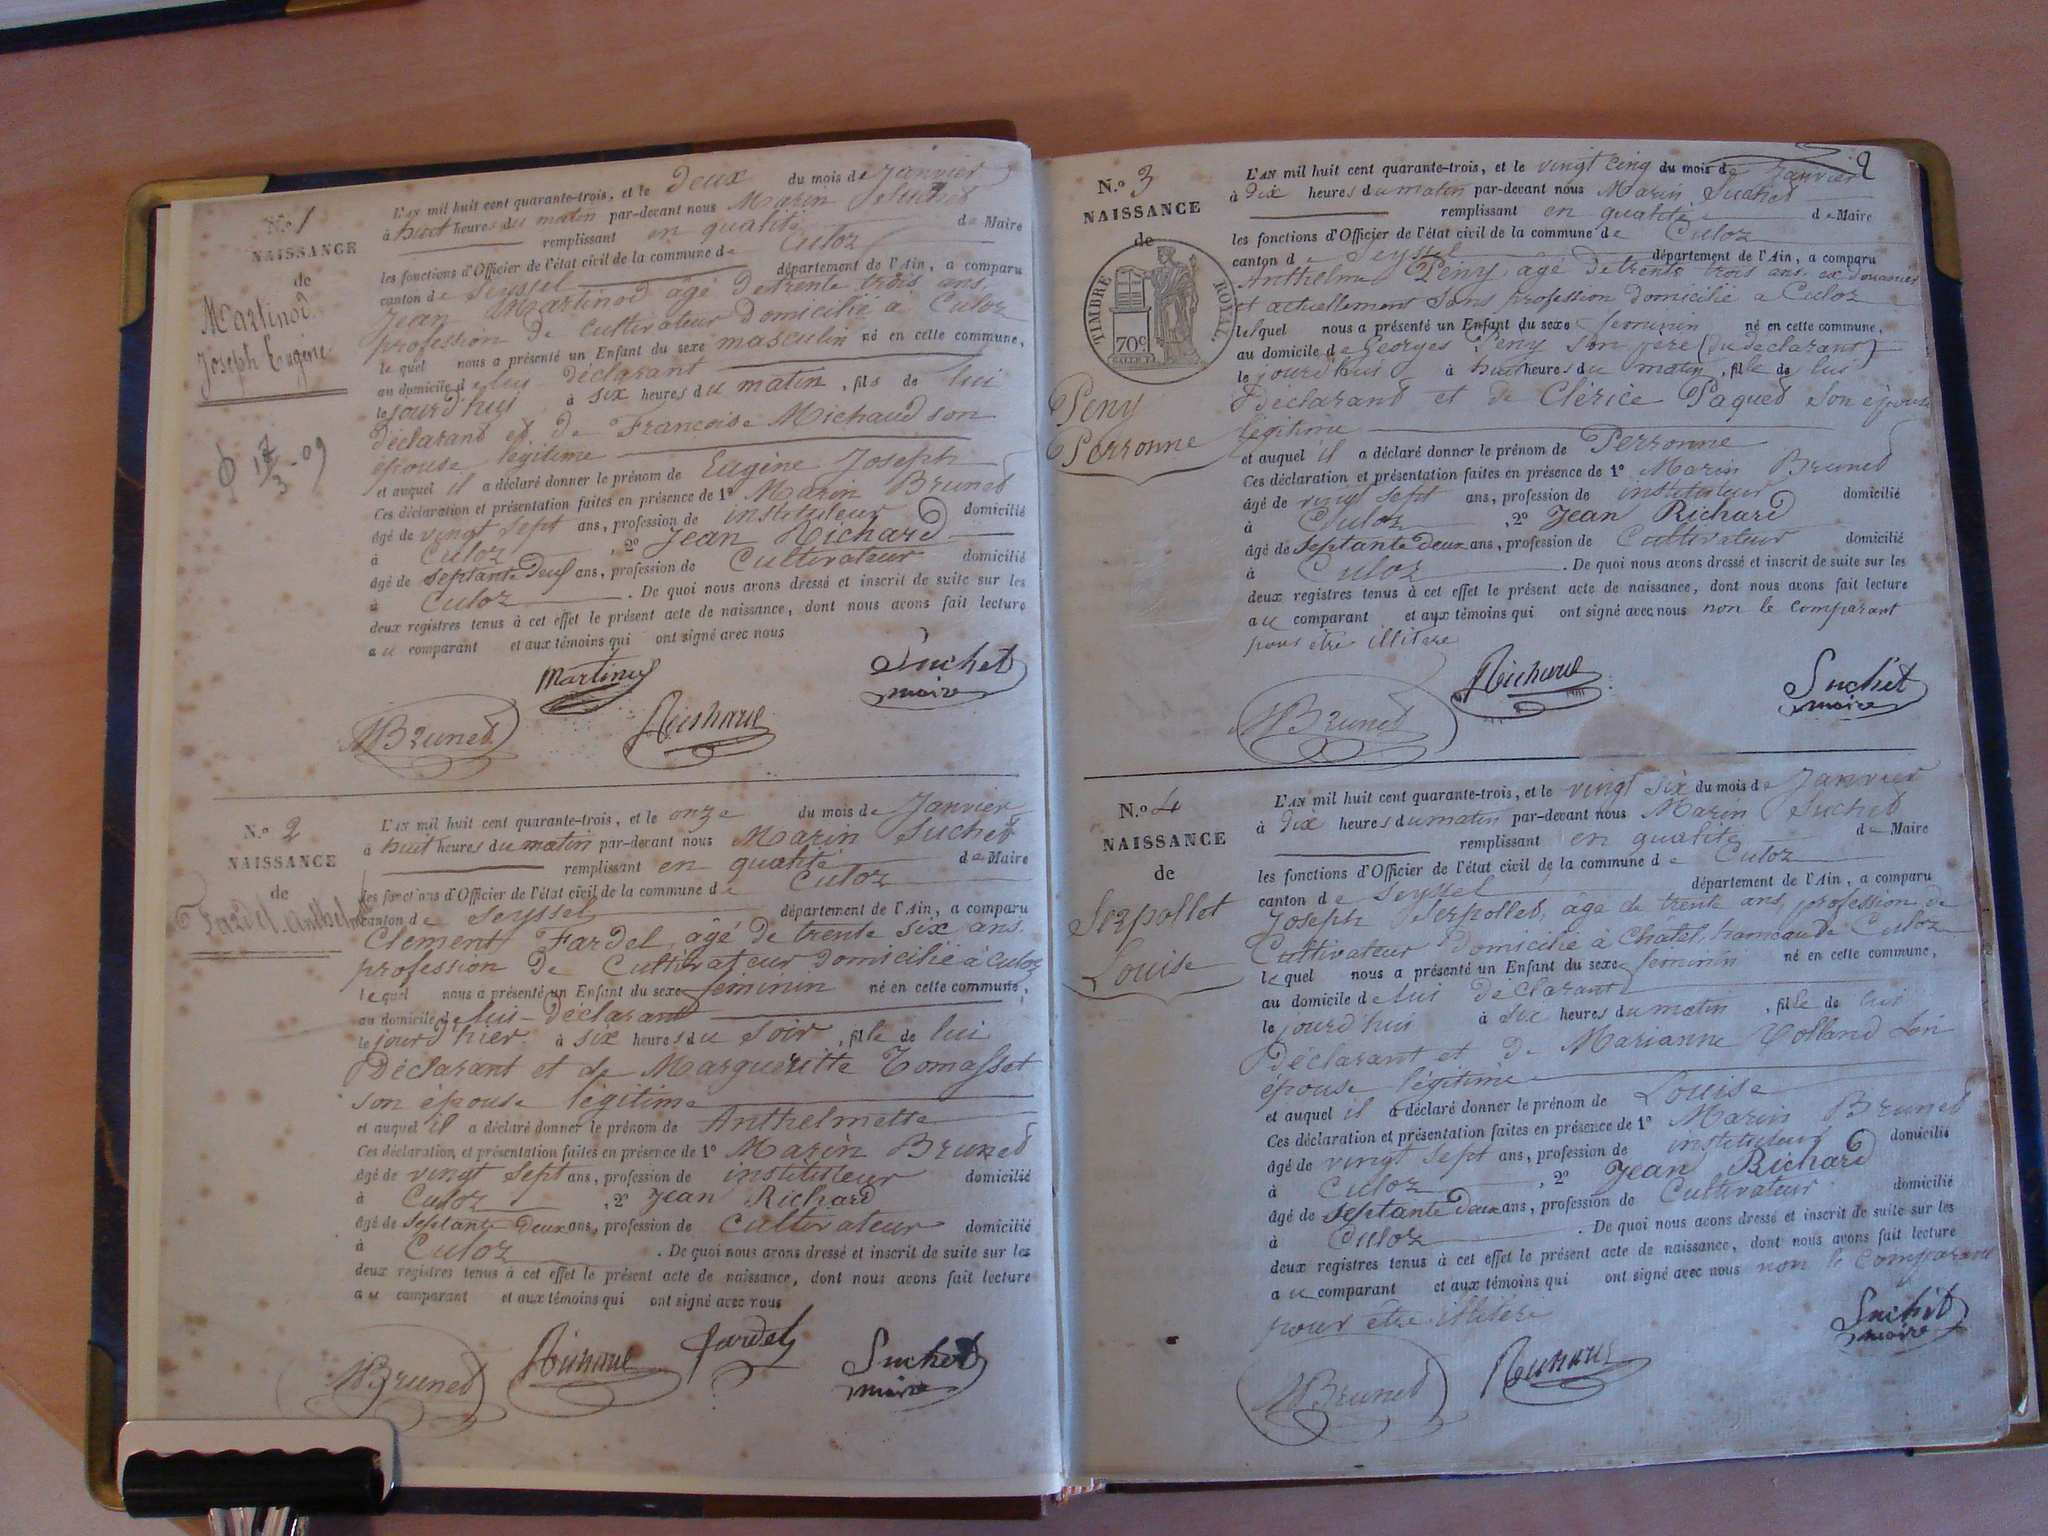 N.o 1
NAISSANCE
de
Martinod
Joseph Eugène
17/3-09
L'AN mil huit cent quarante-trois, et le deux du mois de Janvier
à huit heures du matin par-devant nous Marin Suchet
remplissant en qualité de Maire
les fonctions d'Officier de l'état civil de la commune de Culoz
canton de Seyssel département de l'Ain, a comparu
Jean Martinod âgé de trente trois ans,
profession de Cultivateur domicilié à Culoz
lequel nous a présenté un Enfant du sexe masculin né en cette commune,
au domicile de lui déclarant
le jourd'hui à six heures du matin, fils de lui
déclarant et de Francoise Michaud son
épouse légitime
et auquel il a déclaré donner le prénom de Eugène Joseph
Ces déclaration et présentation faites en présence de 1° Marin Brunet
âgé de vingt sept ans, profession de instituteur domicilié
à Culoz, 2° Jean Richard
âgé de septante deux ans, profession de Cultivateur domicilié
à Culoz. De quoi nous avons dressé et inscrit de suite sur les
deux registres tenus à cet effet le présent acte de naissance, dont nous avons fait lecture
au comparant et aux témoins qui ont signé avec nous
Martinod
Suchet
maire
MBrunet
Richard
N.o 2
NAISSANCE
de
Fardel Anthelmette
L'AN mil huit cent quarante-trois, et le onze du mois de Janvier
à huit heures du matin par-devant nous Marin Suchet
remplissant en qualité de Maire
les fonctions d'Officier de l'état civil de la commune de Culoz
canton de Seyssel département de l'Ain, a comparu
Clement Fardel, âgé de trente six ans.
profession de Cultivateur domicilié à Culoz
lequel nous a présenté un Enfant du sexe feminin né en cette commune,
au domicile de lui déclarant
le jourd'hier à six heures du soir, fille de lui
Déclarant et de Margueritte Tomasset
son épouse légitime
et auquel il a déclaré donner le prénom de Anthelmette
Ces déclaration et présentation faites en présence de 1° Marin Brunet
âgé de vingt sept ans, profession de instituteur domicilié
à Culoz, 2° Jean Richard
âgé de septante deux ans, profession de Cultivateur domicilié
à Culoz. De quoi nous avons dressé et inscrit de suite sur les
deux registres tenus à cet effet le présent acte de naissance, dont nous avons fait lecture
au comparant et aux témoins qui ont signé avec nous
MBrunet
Richard
fardel
Suchet
maire
2
N.o 3
NAISSANCE
de
TIMBRE ROYAL.
70c
Peny
Perronne
L'AN mil huit cent quarante-trois, et le vingt cinq du mois de Janvier
à dix heures du matin par-devant nous Marin Suchet
remplissant en qualité de Maire
les fonctions d'Officier de l'état civil de la commune de Culoz
canton de Seyssel département de l'Ain, a comparu
Anthelme Peny, âgé de trente trois ans, ex douanier
et actuellement sans profession domicilié a Culoz
lequel nous a présenté un Enfant du sexe feminin né en cette commune,
au domicile de Georges Peny son père (du déclarant)
le jourd'hui à huit heures du matin, fille de lui
Déclarant et de Clérice Paquet son épouse
légitime
et auquel il a déclaré donner le prénom de Perronne
Ces déclaration et présentation faites en présence de 1° Marin Brunet
âgé de vingt sept ans, profession de instituteur domicilié
à Culoz, 2° Jean Richard
âgé de septante deux ans, profession de Cultivateur domicilié
à Culoz. De quoi nous avons dressé et inscrit de suite sur les
deux registres tenus à cet effet le présent acte de naissance, dont nous avons fait lecture
au comparant et aux témoins qui ont signé avec nous non le comparant
pour être illitere
Richard
Suchet
maire
MBrunet
N.o 4
NAISSANCE
de
Serpollet
Louise
L'AN mil huit cent quarante-trois, et le vingt six du mois de Janvier
à dix heures du matin par-devant nous Marin Suchet
remplissant en qualité de Maire
les fonctions d'Officier de l'état civil de la commune de Culoz
canton de Seyssel département de l'Ain, a comparu
Joseph Serpollet, âgé de trente ans, profession de
Cultivateur domicilié à Châtel, hameau de Culoz
lequel nous a présenté un Enfant du sexe feminin né en cette commune,
au domicile de lui déclarant
le jourd'hui à six heures du matin, fille de lui
Déclarant et de Marianne son
épouse légitime
et auquel il a déclaré donner le prénom de Louise
Ces déclaration et présentation faites en présence de 1° Marin Brunet
âgé de vingt sept ans, profession de instituteur domicilié
à Culoz, 2° Jean Richard
âgé de septante deux ans, profession de Cultivateur domicilié
à Culoz. De quoi nous avons dressé et inscrit de suite sur les
deux registres tenus à cet effet le présent acte de naissance, dont nous avons fait lecture
au comparant et aux témoins qui ont signé avec nous non le comparant
pour être illitére
Suchet
maire
MBrunet
Richard